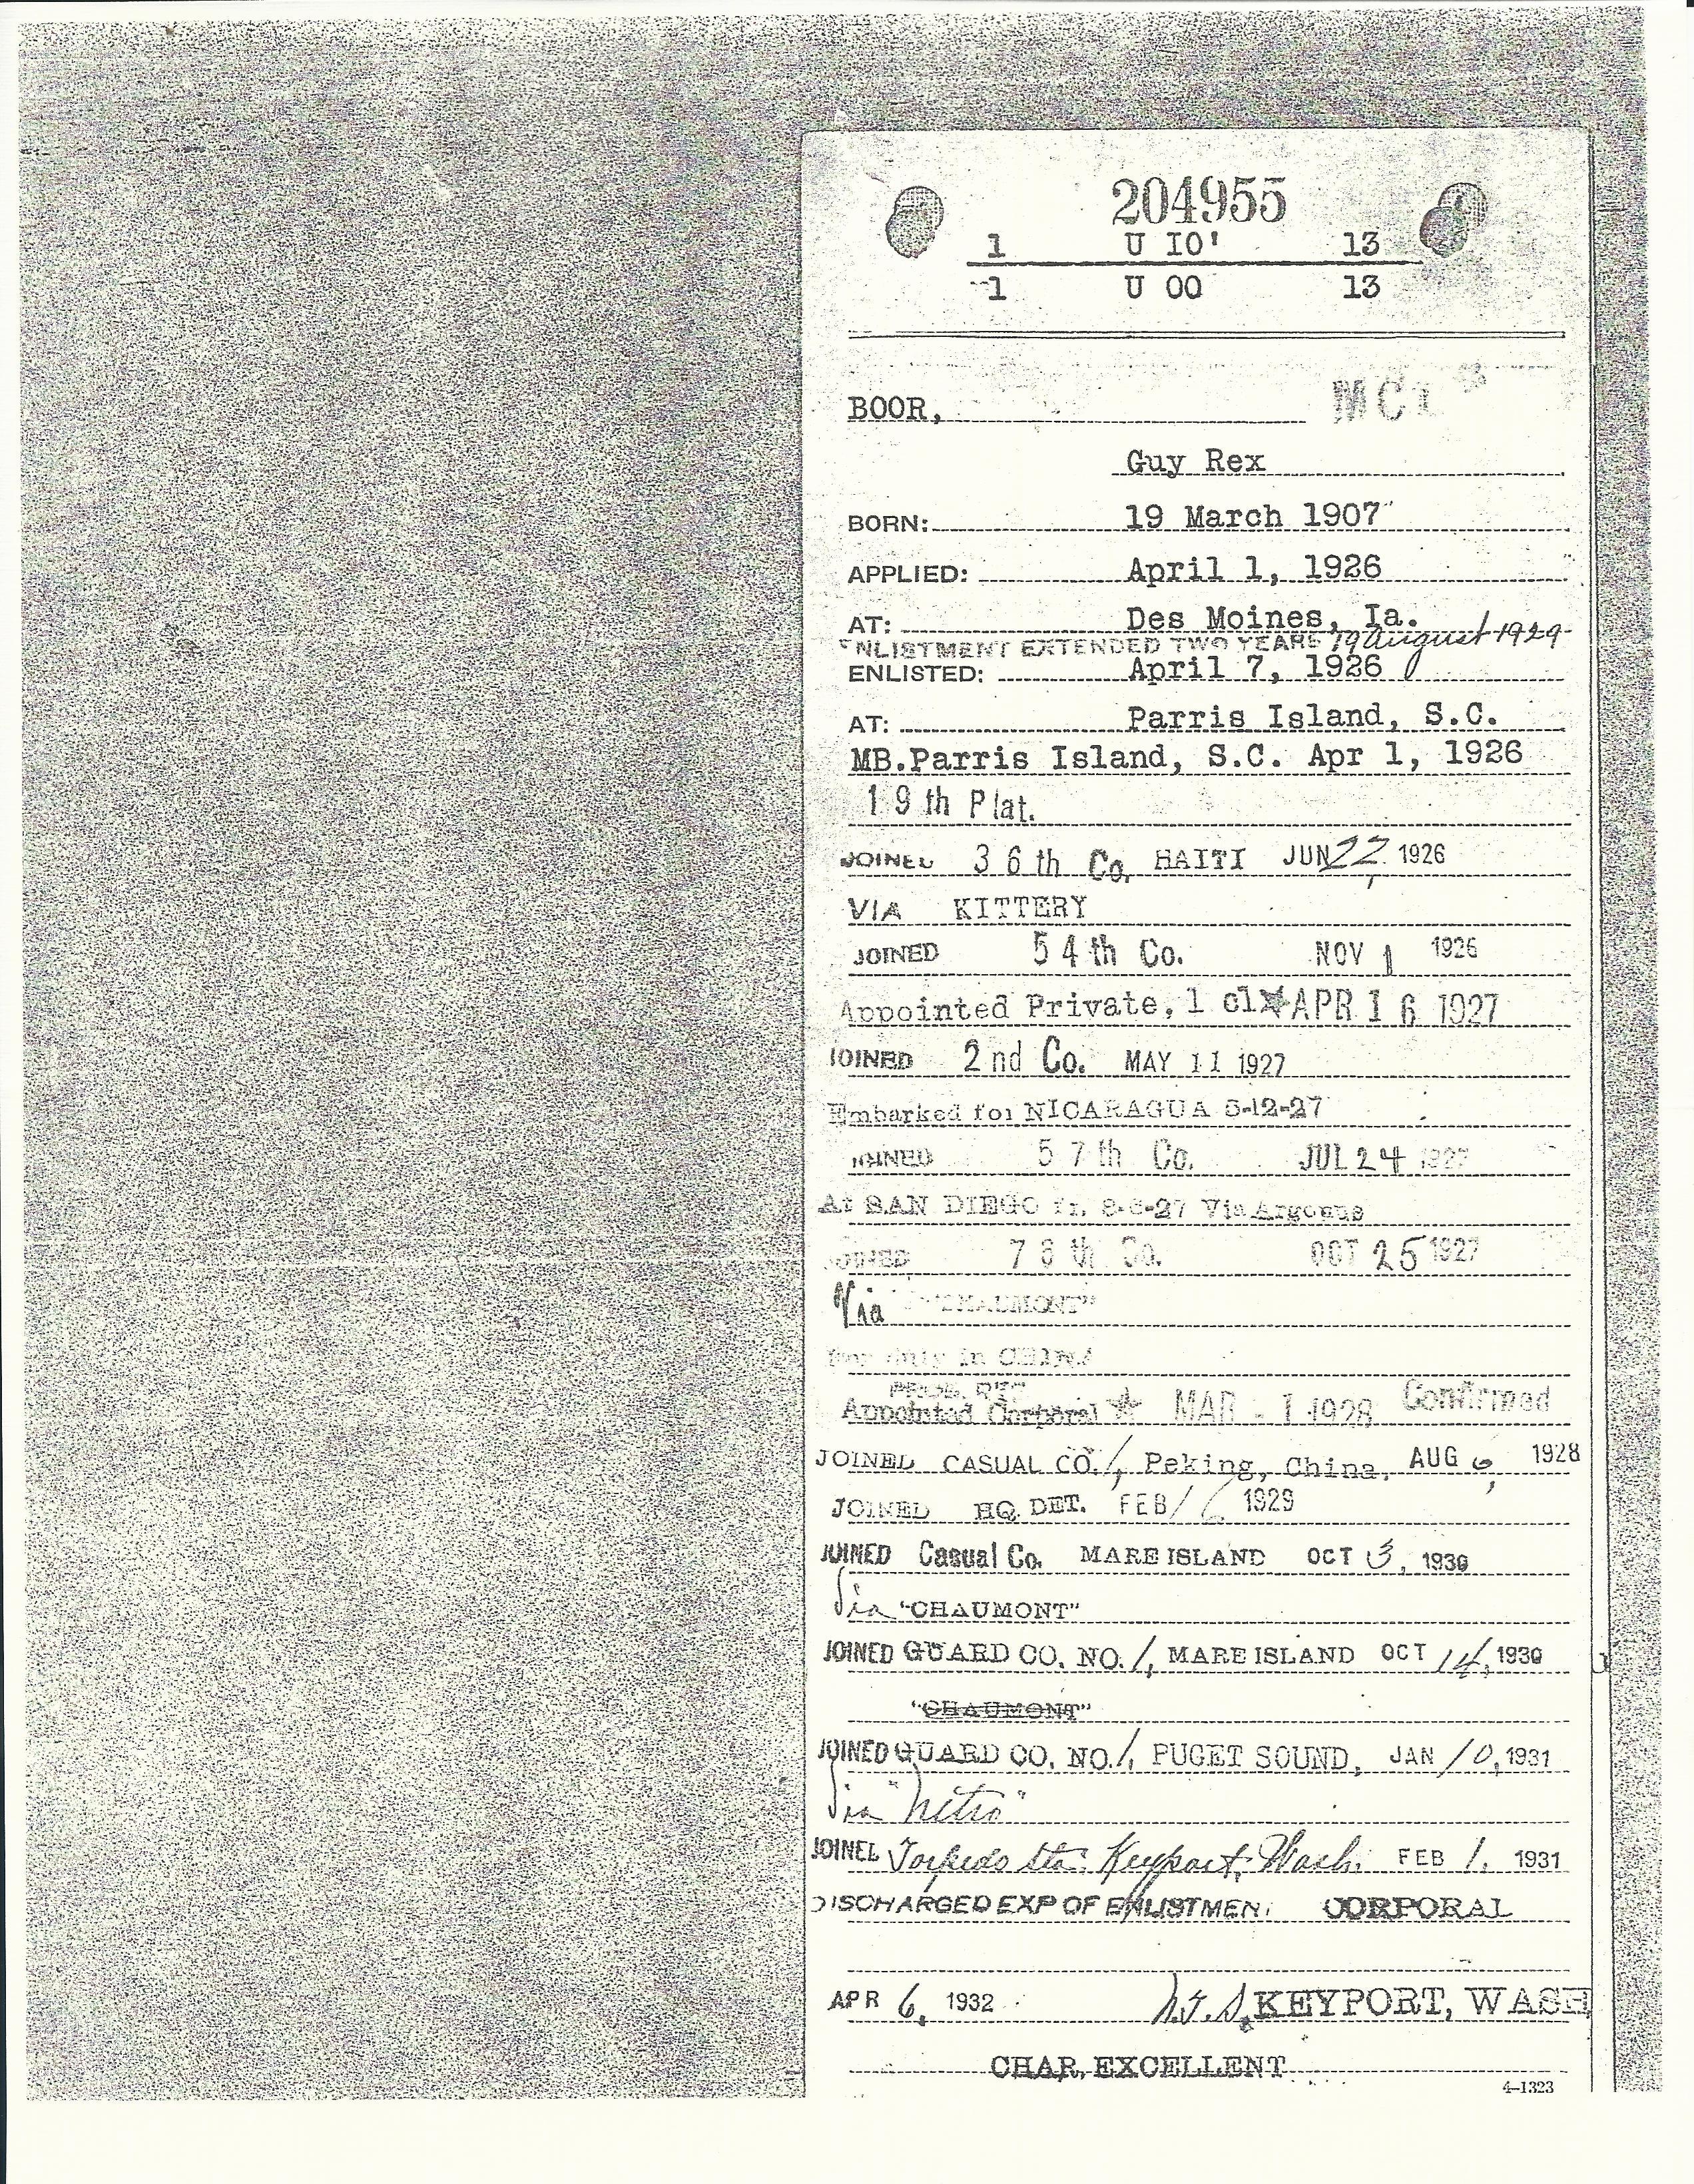 204955
1 U IO' 13
1 U OO 13
BOOR,
Guy Rex
BORN: 19 March 1907
APPLIED: April 1, 1926
AT: Des Moines, Ia.
ENLISTMENT EXTENDED TWO YEARS 19 August 1929
ENLISTED: April 7, 1926
AT: Parris Island, S.C.
MB.Parris Island, S.C. Apr 1, 1926
19th Plat.
JOINED 36th Co. HAITI JUN 22, 1926
VIA KITTERY
JOINED 54th Co. NOV 1 1926
Appointed Private, 1 cl APR 16 1927
JOINED 2nd Co. MAY 11 1927
Embarked for NICARAGUA 5-12-27
JOINED 57th Co. JUL 24 1927
At SAN DIEGO fr. Via Argonne
JOINED Co. OCT 25 1927
Via "CHAUMONT"
For duty in CHINA
Appointed Corporal MAR - 1 1928 Confirmed
JOINED CASUAL CO. 1, Peking, China, AUG 6, 1928
JOINED HQ. DET. FEB 16 1929
JOINED Casual Co. MARE ISLAND OCT 3, 1930
Via "CHAUMONT"
JOINED GUARD CO. NO. 1, MARE ISLAND OCT 14, 1930
"CHAUMONT"
JOINED GUARD CO. NO. 1, PUGET SOUND, JAN 10, 1931
Via "Nitro"
JOINED Torpedo Sta. Keyport, Wash. FEB 1, 1931
DISCHARGED EXP OF ENLISTMENT CORPORAL
APR 6, 1932 N.T.S. KEYPORT, WASH
CHAR. EXCELLENT
4-1323